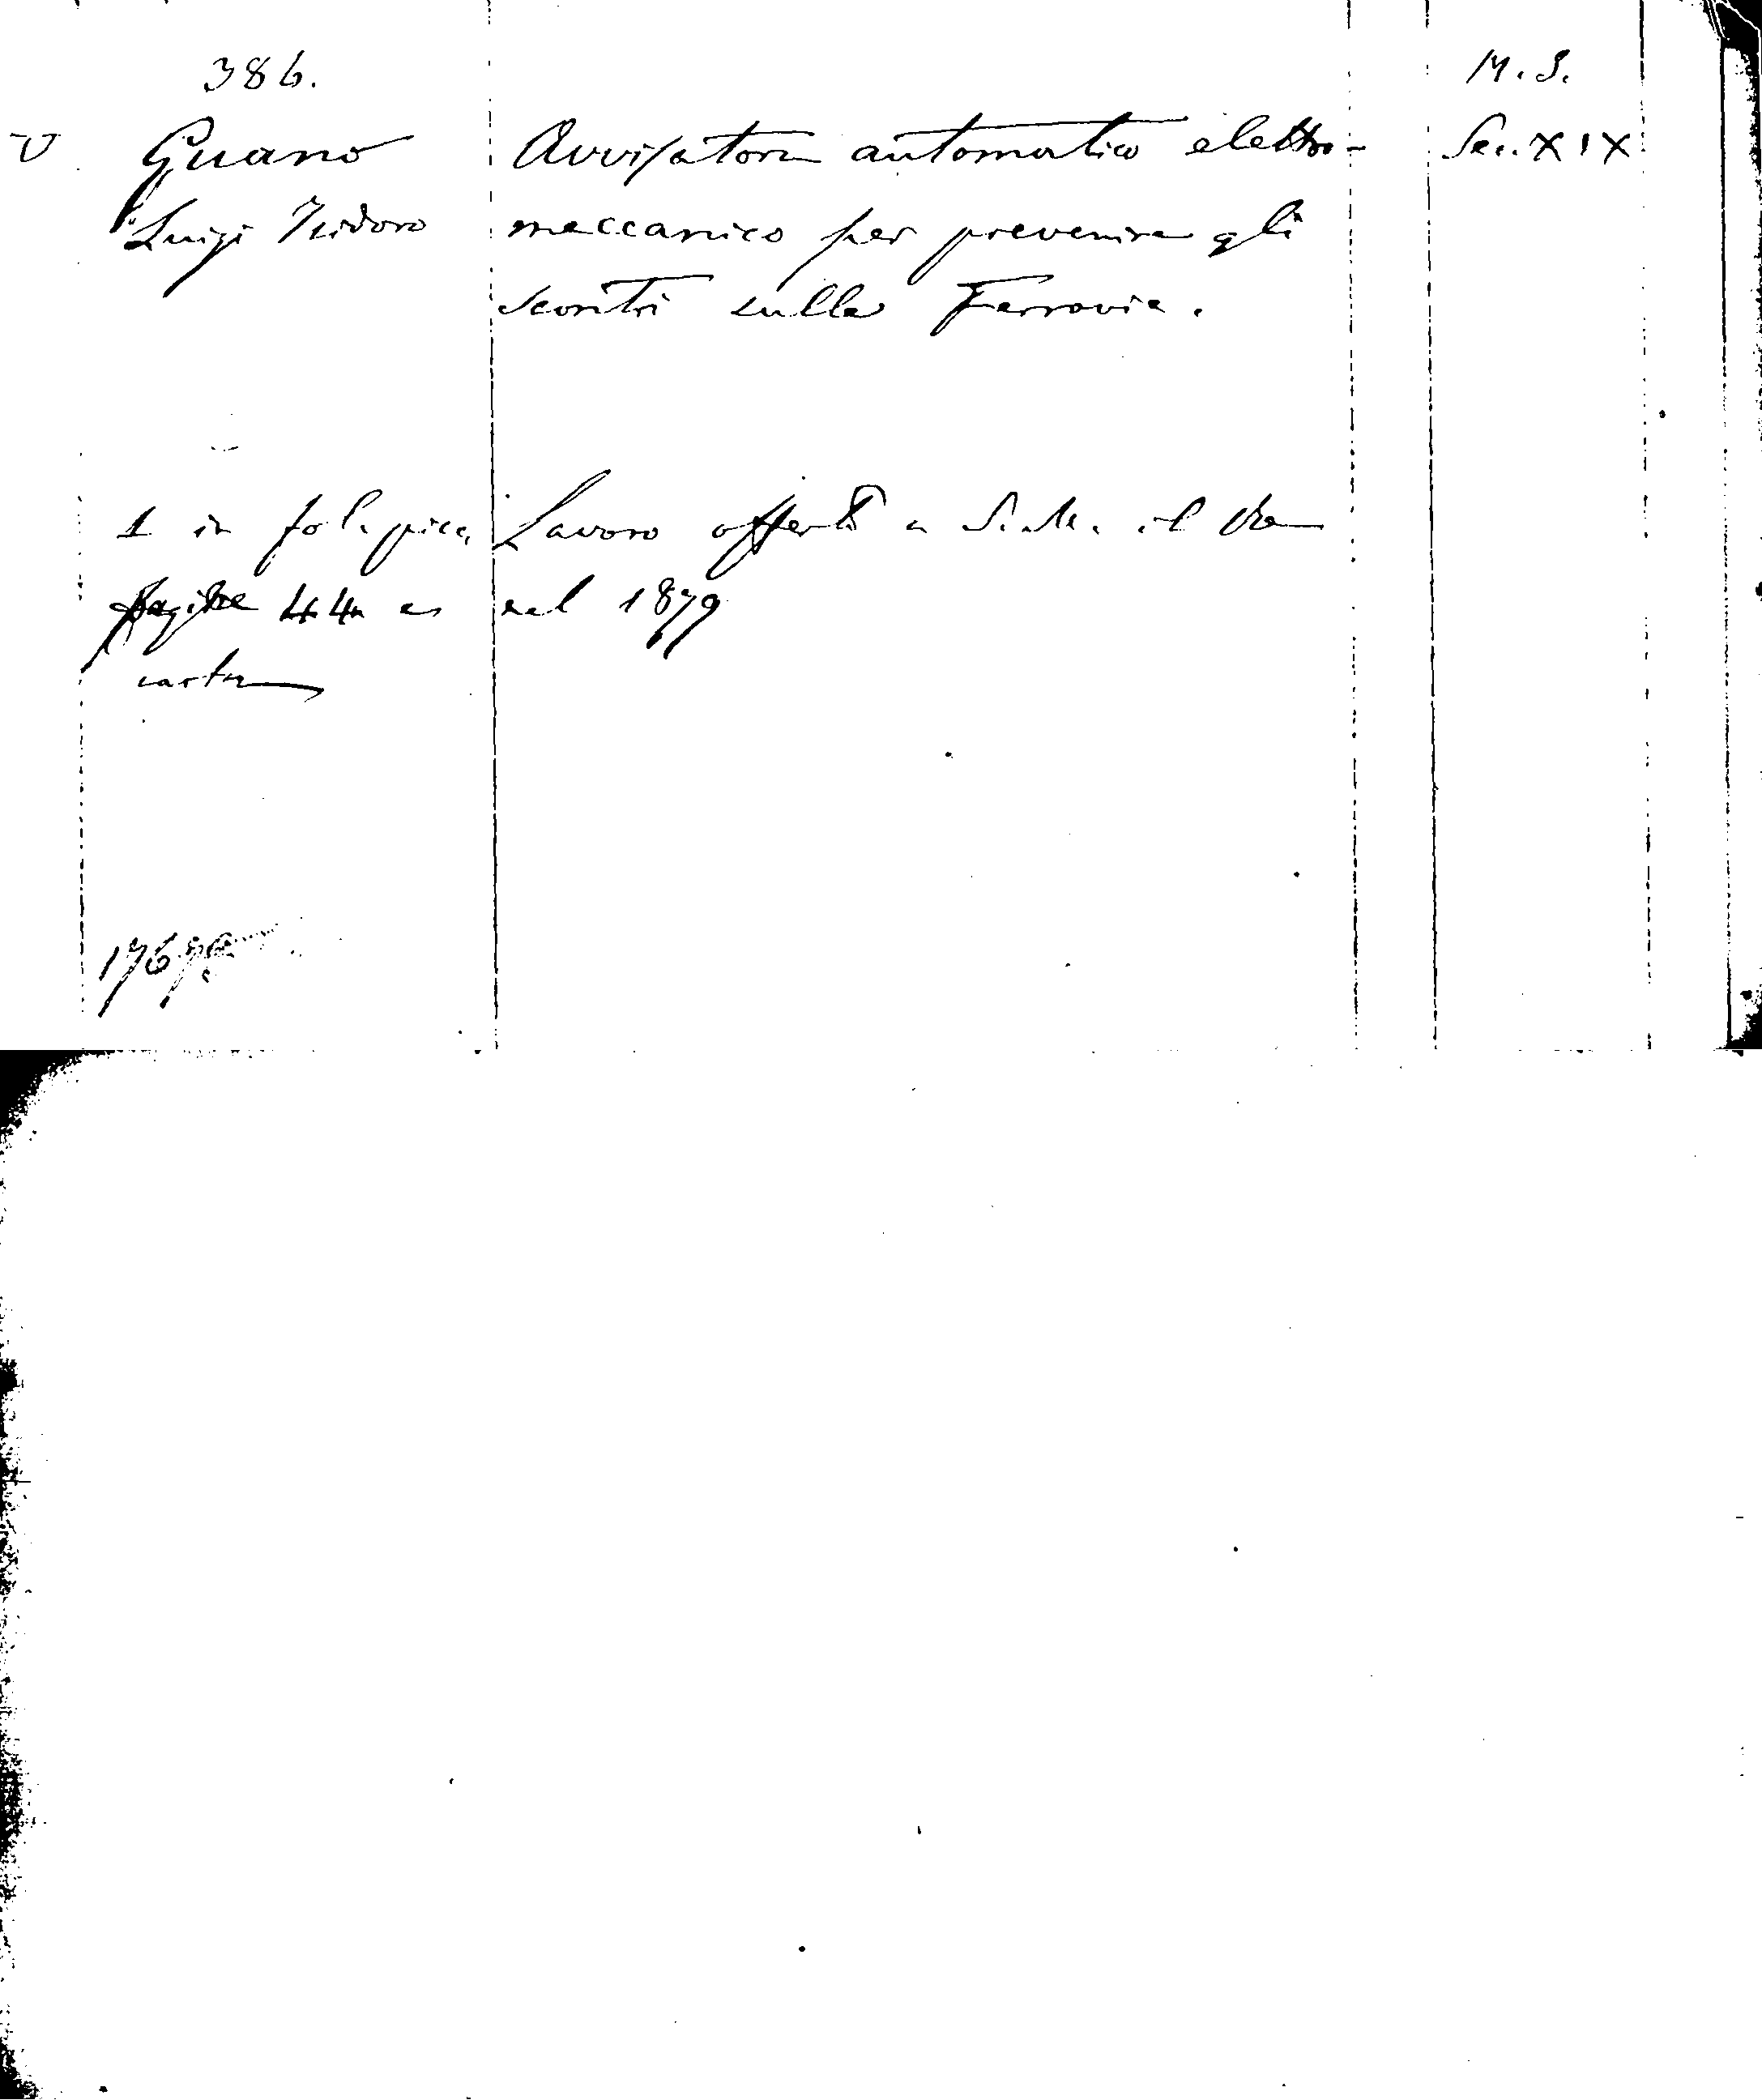 386.
M. S.
V
Guano
Avvisatore automatico elettro-
Sec. XIX
Luigi Isidoro
meccanico per prevenire gli
scontri sulle Ferrovie.
1 in fol. picc.
Lavoro offerto a S. M. il Re
pagine 44
nel 1879
carta